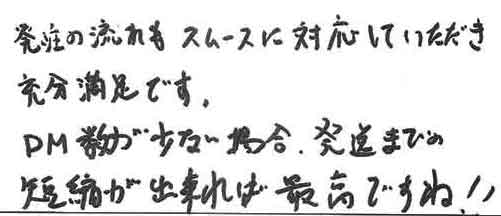 発注の流れもスムースに対応していただき
充分満足です。
DM数が少ない場合、発送までの
短縮が出来れば最高ですね!!